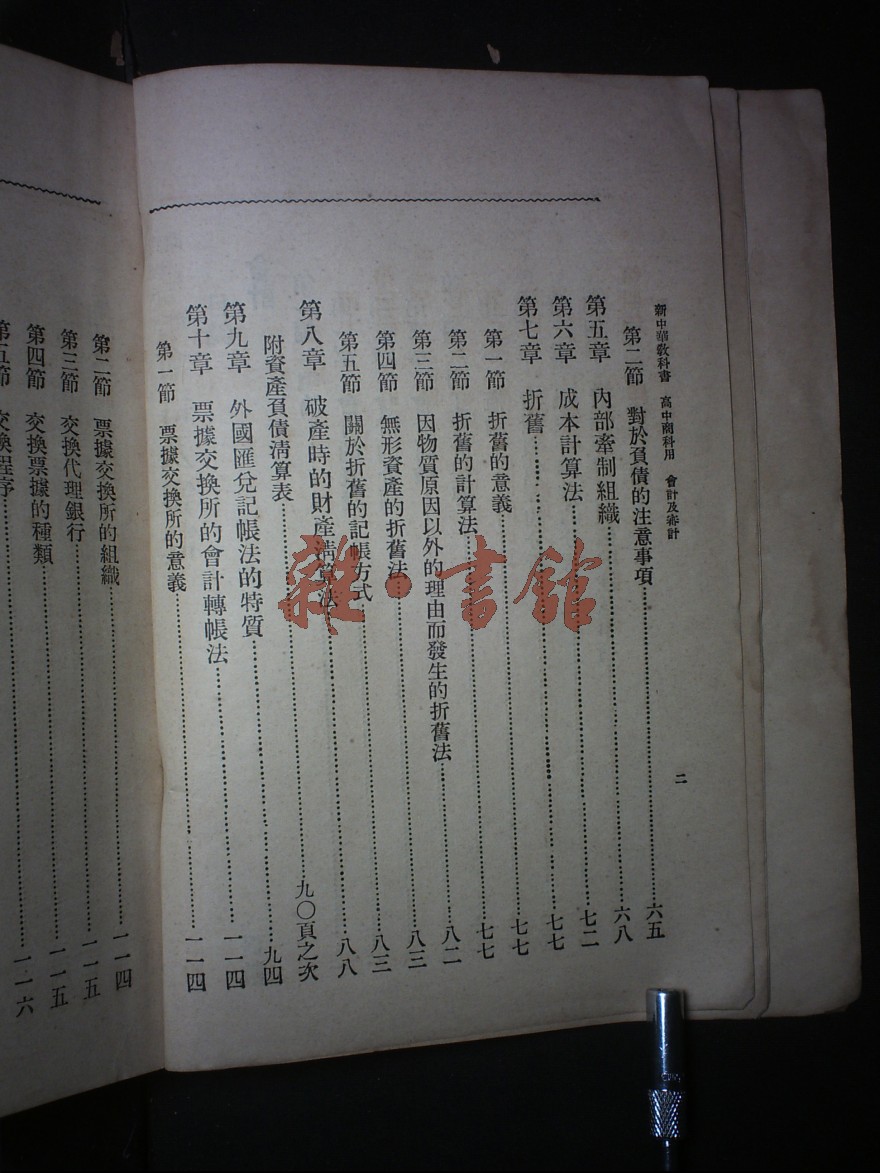 新中華教科書 高中商科用 會計及審計 二
第二節 對於負債的注意事項……六五
第五章 內部牽制組織……六八
第六章 成本計算法……七二
第七章 折舊……七七
第一節 折舊的意義……七七
第二節 折舊的計算法……七七
第三節 因物質原因以外的理由而發生的折舊法……八二
第四節 無形資產的折舊法……八三
第五節 關於折舊的記帳方式……八三
第八章 破產時的財產清算法……八八
附資產負債清算表……九〇頁之次
第九章 外國匯兌記帳法的特質……九四
第十章 票據交換所的會計轉帳法……一一四
第一節 票據交換所的意義……一一四
第二節 票據交換所的組織……一一四
第三節 交換代理銀行……一一五
第四節 交換票據的種類……一一五
第五節 交換程序……一一六
雜·書館